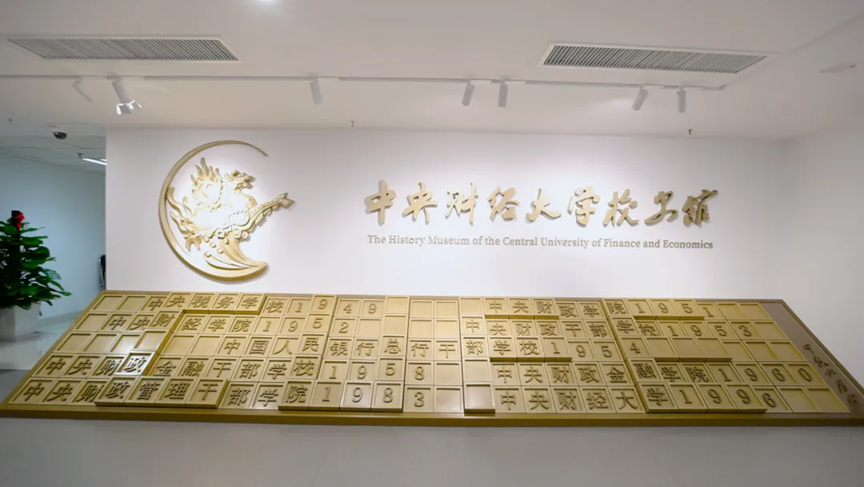 中央财经大学校史馆
The History Museum of the Central University of Finance and Economics
中央税务学校1949 中央财政学院1951
中央财经学院1952 中央财政干部学校1953
中国人民银行总行干部学校1954
中央财政金融干部学校1958 中央财政金融学院1960
中央财政管理干部学院1983 中央财经大学1996